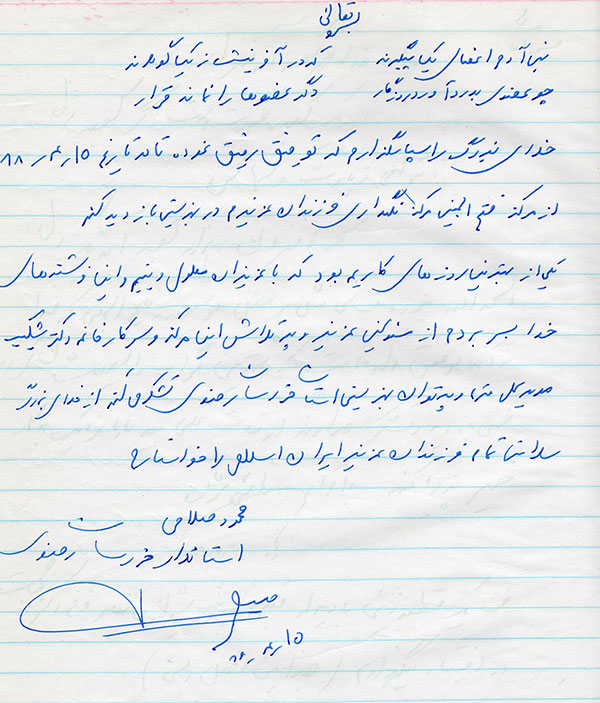 بسمه تعالی
بنی آدم اعضای یکدیگرند که در آفرینش ز یک گوهرند
چو عضوی بدرد آورد روزگار دگر عضوها را نماند قرار
خدای بزرگ را سپاسگزارم که توفیق رفیق نموده تا در تاریخ ۱۵ر ر۸۸
از مرکز فتح المبین مرکز نگهداری فرزندان عزیزم در بهزیستی بازدید کنم
یکی از بهترین روزهای کاریم بود که با عزیزان معلول و یتیم و این فرشته‌های
خدا بسر بردم از مسئولین عزیز و پر تلاش این مرکز و سرکار خانم دکتر شکیب
مدیر کل محترم و پرتوان بهزیستی استان خراسان رضوی تشکر می کنم از خدای بزرگ
سلامتی تمام فرزندان عزیز ایران اسلامی را خواستارم
محمود صلاحی
استاندار خراسان رضوی